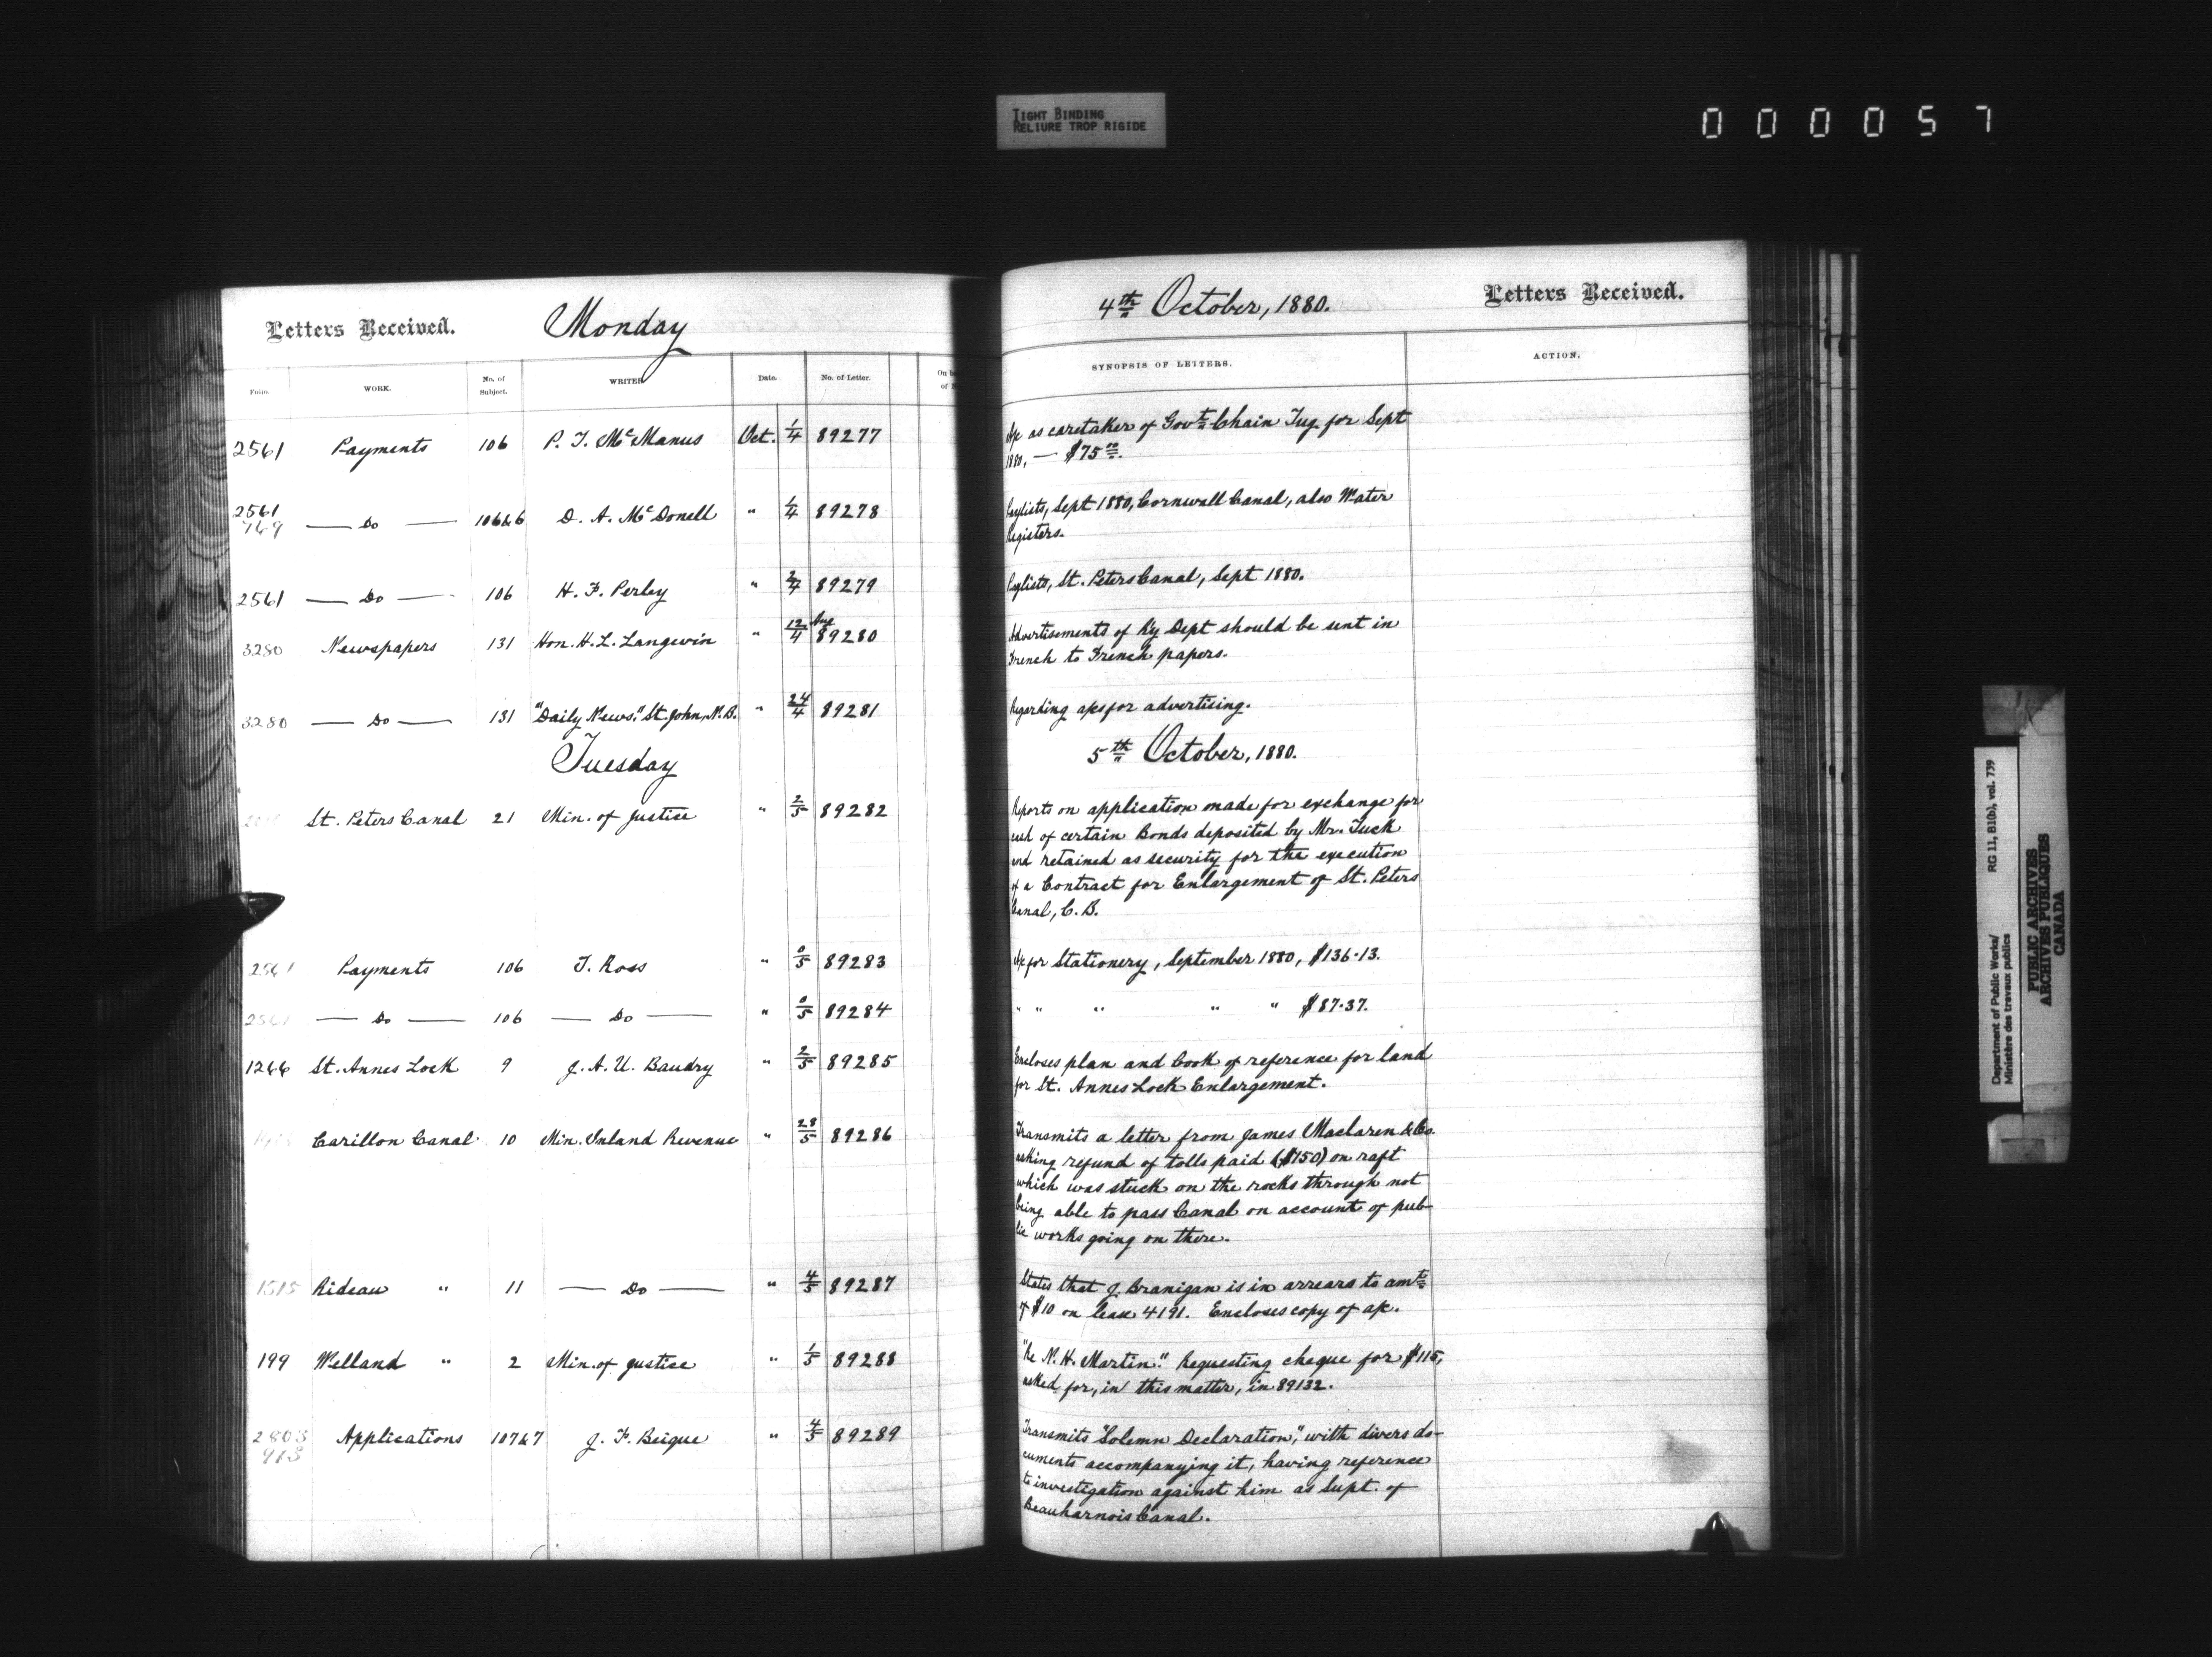 TIGHT BINDING
RELIURE TROP RIGIDE
0 0 0 0 5 7
Letters Received. Monday
4th October, 1880. Letters Received.
Folio. WORK. No. of Subject. WRITER Date. No. of Letter.
SYNOPSIS OF LETTERS. ACTION.
2561 Payments 106 P. J. McManus Oct. 1/4 89277
A/c as caretaker of Govt Chain Tug for Sept
1880, — $75.00.
2561
769 — Do — 106&6 D. A. McDonell " 1/4 89278
Paylists, Sept 1880, Cornwall Canal, also Water
Registers.
2561 — Do — 106 H. F. Perley " 2/4 89279
Paylists, St. Peters Canal, Sept 1880.
3280 Newspapers 131 Hon. H. L. Langevin " 12/4 Aug 89280
Advertisements of Ry Dept should be sent in
French to French papers.
3280 — Do — 131 "Daily News." St. John, N.B. " 24/4 89281
Regarding a/cs for advertising.
Tuesday
5th October, 1880.
St. Peters Canal 21 Min. of Justice " 2/5 89282
Reports on application made for exchange for
cash of certain Bonds deposited by Mr. Tuck
and retained as security for the execution
of a Contract for Enlargement of St. Peters
Canal, C.B.
2561 Payments 106 T. Ross " 0/5 89283
A/c for Stationery, September 1880, $136.13.
2561 — Do — 106 — Do — " 0/5 89284
" " " " " $87.37.
1266 St. Annes Lock 9 J. A. U. Baudry " 2/5 89285
Encloses plan and book of reference for land
for St. Annes Lock Enlargement.
Carillon Canal 10 Min. Inland Revenue " 28/5 89286
Transmits a letter from James Maclaren & Co.
asking refund of tolls paid ($150) on raft
which was stuck on the rocks through not
being able to pass Canal on account of pub-
lic works going on there.
1515 Rideau " 11 — Do — " 4/5 89287
States that J. Branigan is in arrears to amt
of $10 on lease 4191. Encloses copy of a/c.
199 Welland " 2 Min. of Justice " 1/5 89288
"Re N. H. Martin." Requesting cheque for $115,
asked for, in this matter, in 89132.
2803
913 Applications 107&7 J. F. Beique " 4/5 89289
Transmits "Solemn Declaration," with divers do-
cuments accompanying it, having reference
to investigation against him as Supt. of
Beauharnois Canal.
Department of Public Works/ RG 11, B1(b), vol. 739
Ministère des travaux publics
PUBLIC ARCHIVES
ARCHIVES PUBLIQUES
CANADA